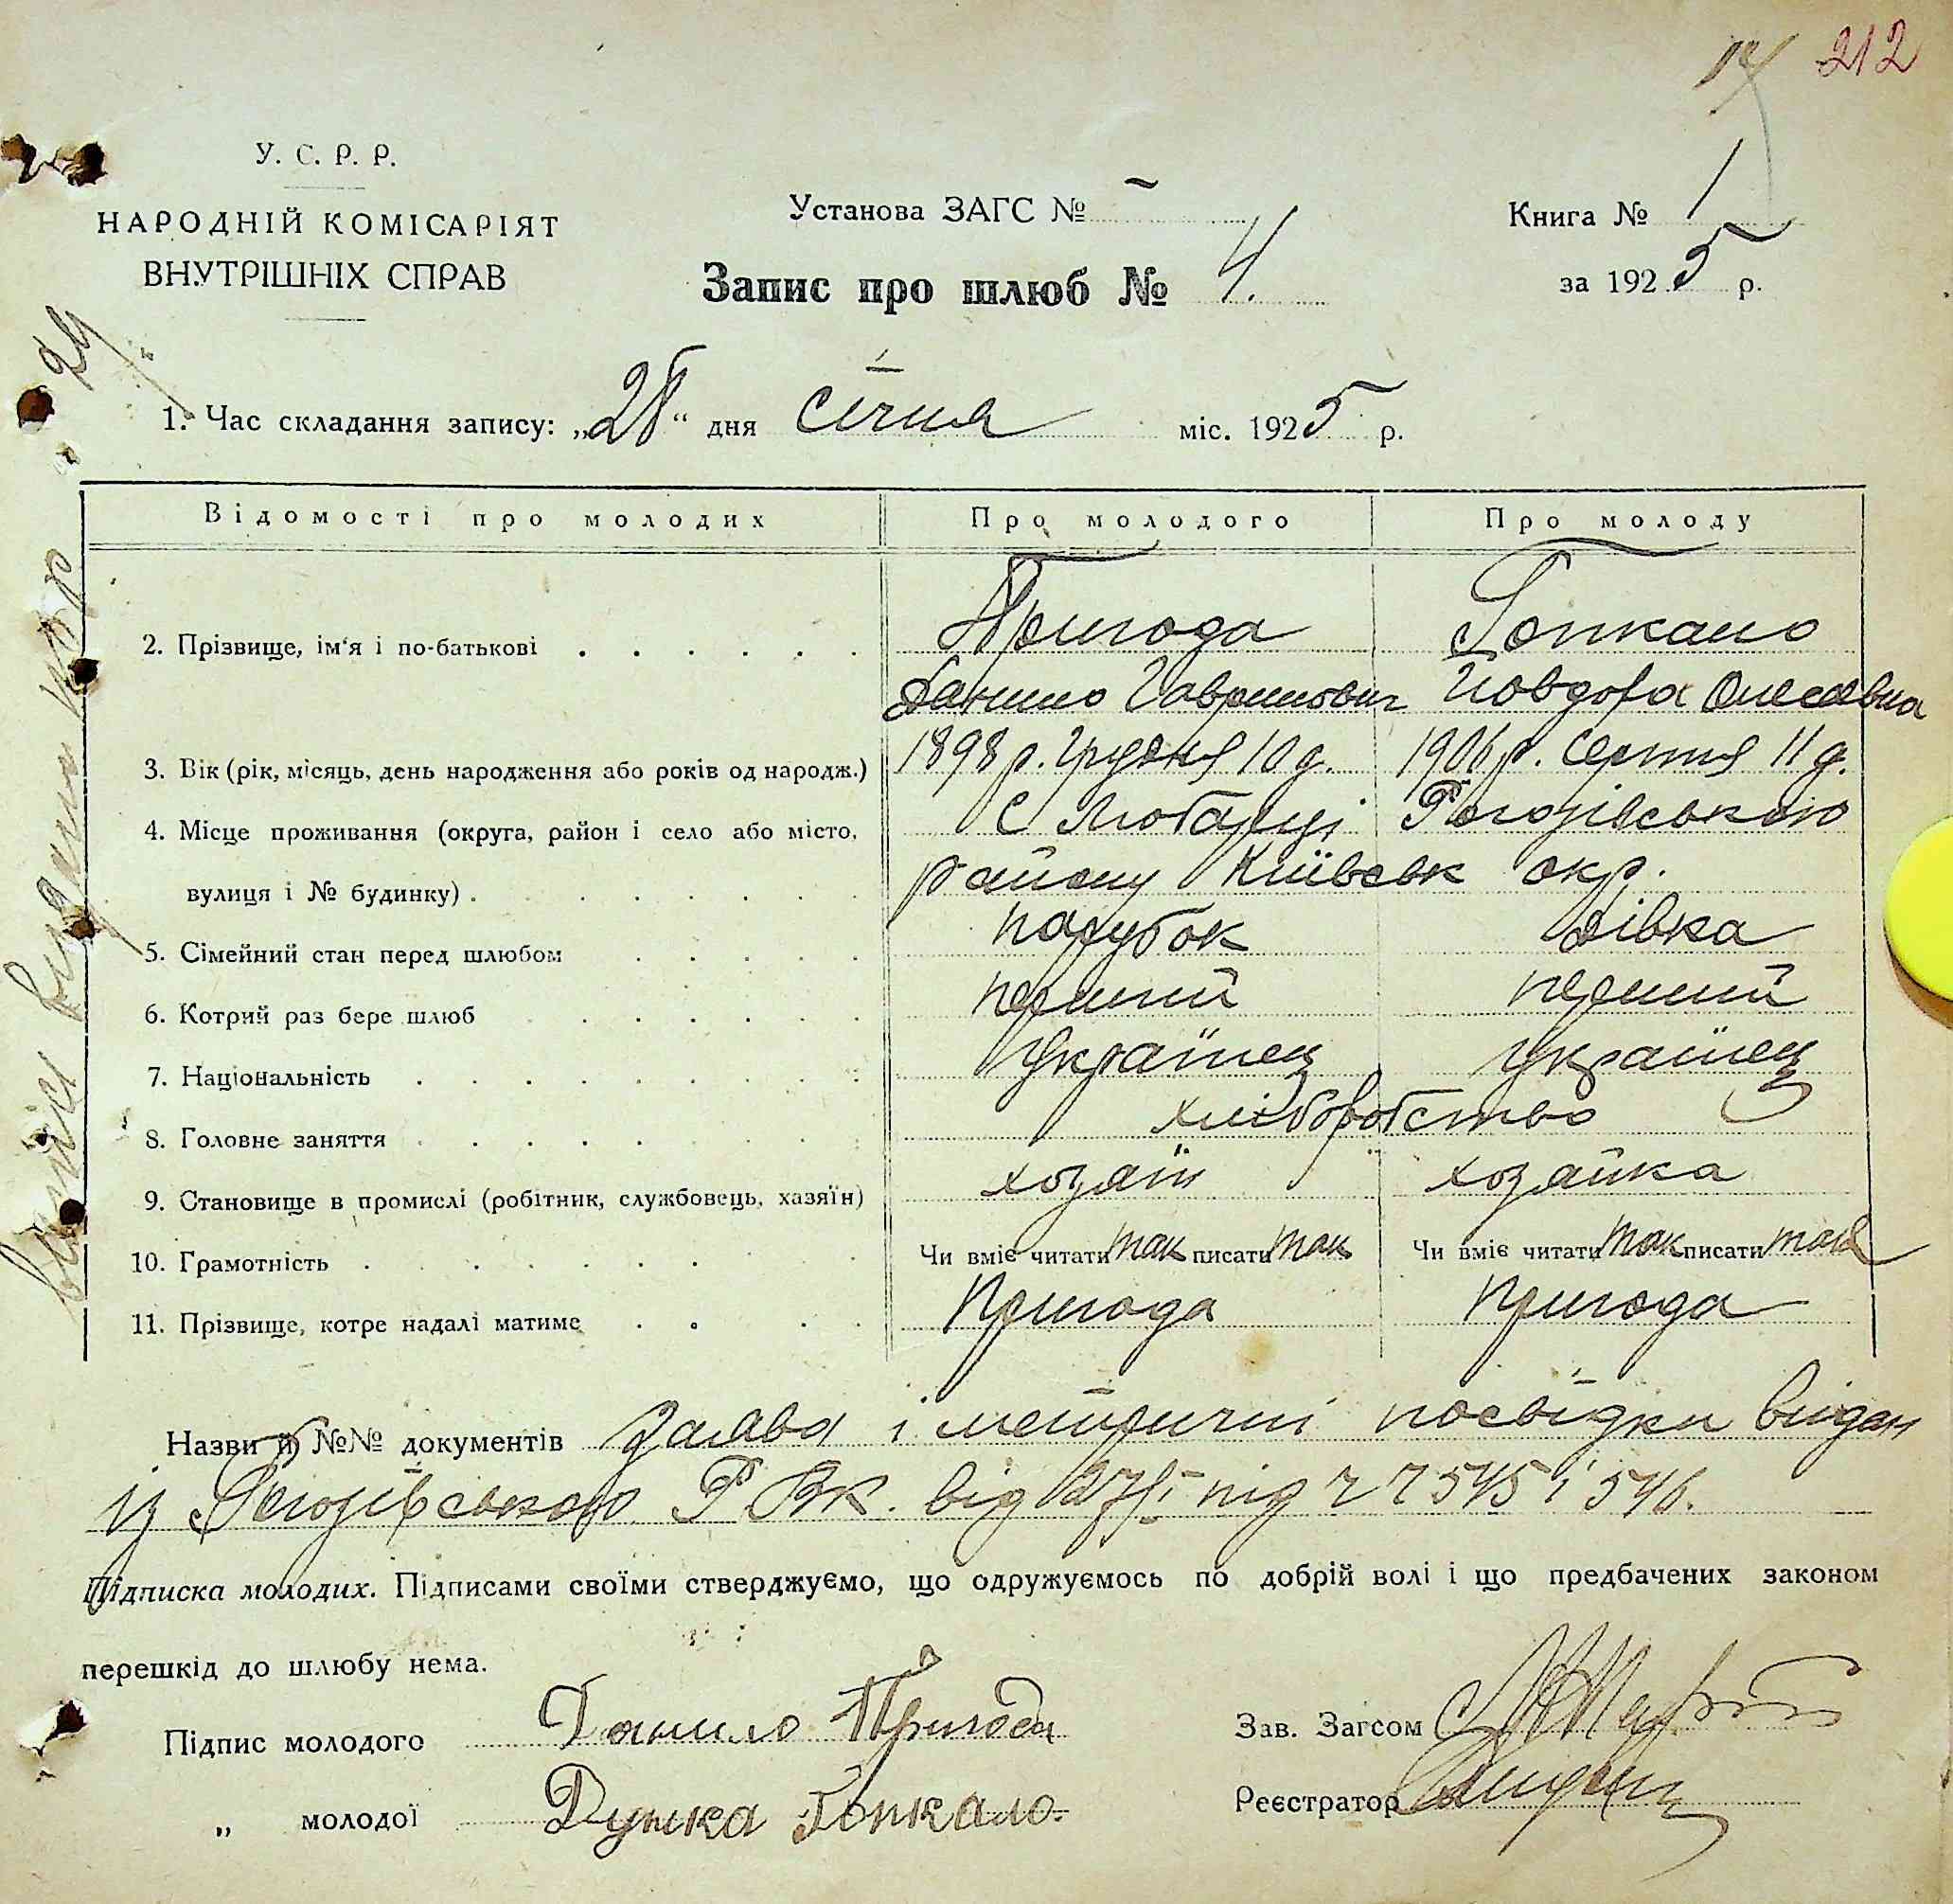 212
У. С. Р. Р.
НАРОДНІЙ КОМІСАРІЯТ
ВНУТРІШНІХ СПРАВ
Установа ЗАГС № –
Книга № 1
Запис про шлюб № 4.
за 1925 р.
1. Час складання запису: „28“ дня січня міс. 1925 р.
Відомості про молодих Про молодого Про молоду
2. Прізвище, ім'я і по-батькові Пригода Гопкало
Данило Гаврилович Йовдоха Олексавна
3. Вік (рік, місяць, день народження або років од народж.) 1898 р. Грудня 10 д. 1906 р. Серпня 11 д.
4. Місце проживання (округа, район і село або місто, С Любарці Рогозівського
вулиця і № будинку) району Київськ окр.
5. Сімейний стан перед шлюбом парубок дівка
6. Котрий раз бере шлюб перший перший
7. Національність Українец Українец
8. Головне заняття хліборобство
9. Становище в промислі (робітник, службовець, хазяїн) хозяїн хозайка
10. Грамотність Чи вміє читати так писати так Чи вміє читати так писати так
11. Прізвище, котре надалі матиме Пригода Пригода
Назви й №№ документів Заява і метричні посвідки видан
із Рогозівського Р В К. від 27/I під 545 і 546.
Підписка молодих. Підписами своїми стверджуємо, що одружуємось по добрій волі і що предбачених законом
перешкід до шлюбу нема.
Підпис молодого Данило Пригода
Зав. Загсом
„ молодої Дунка Гопкало.
Реєстратор